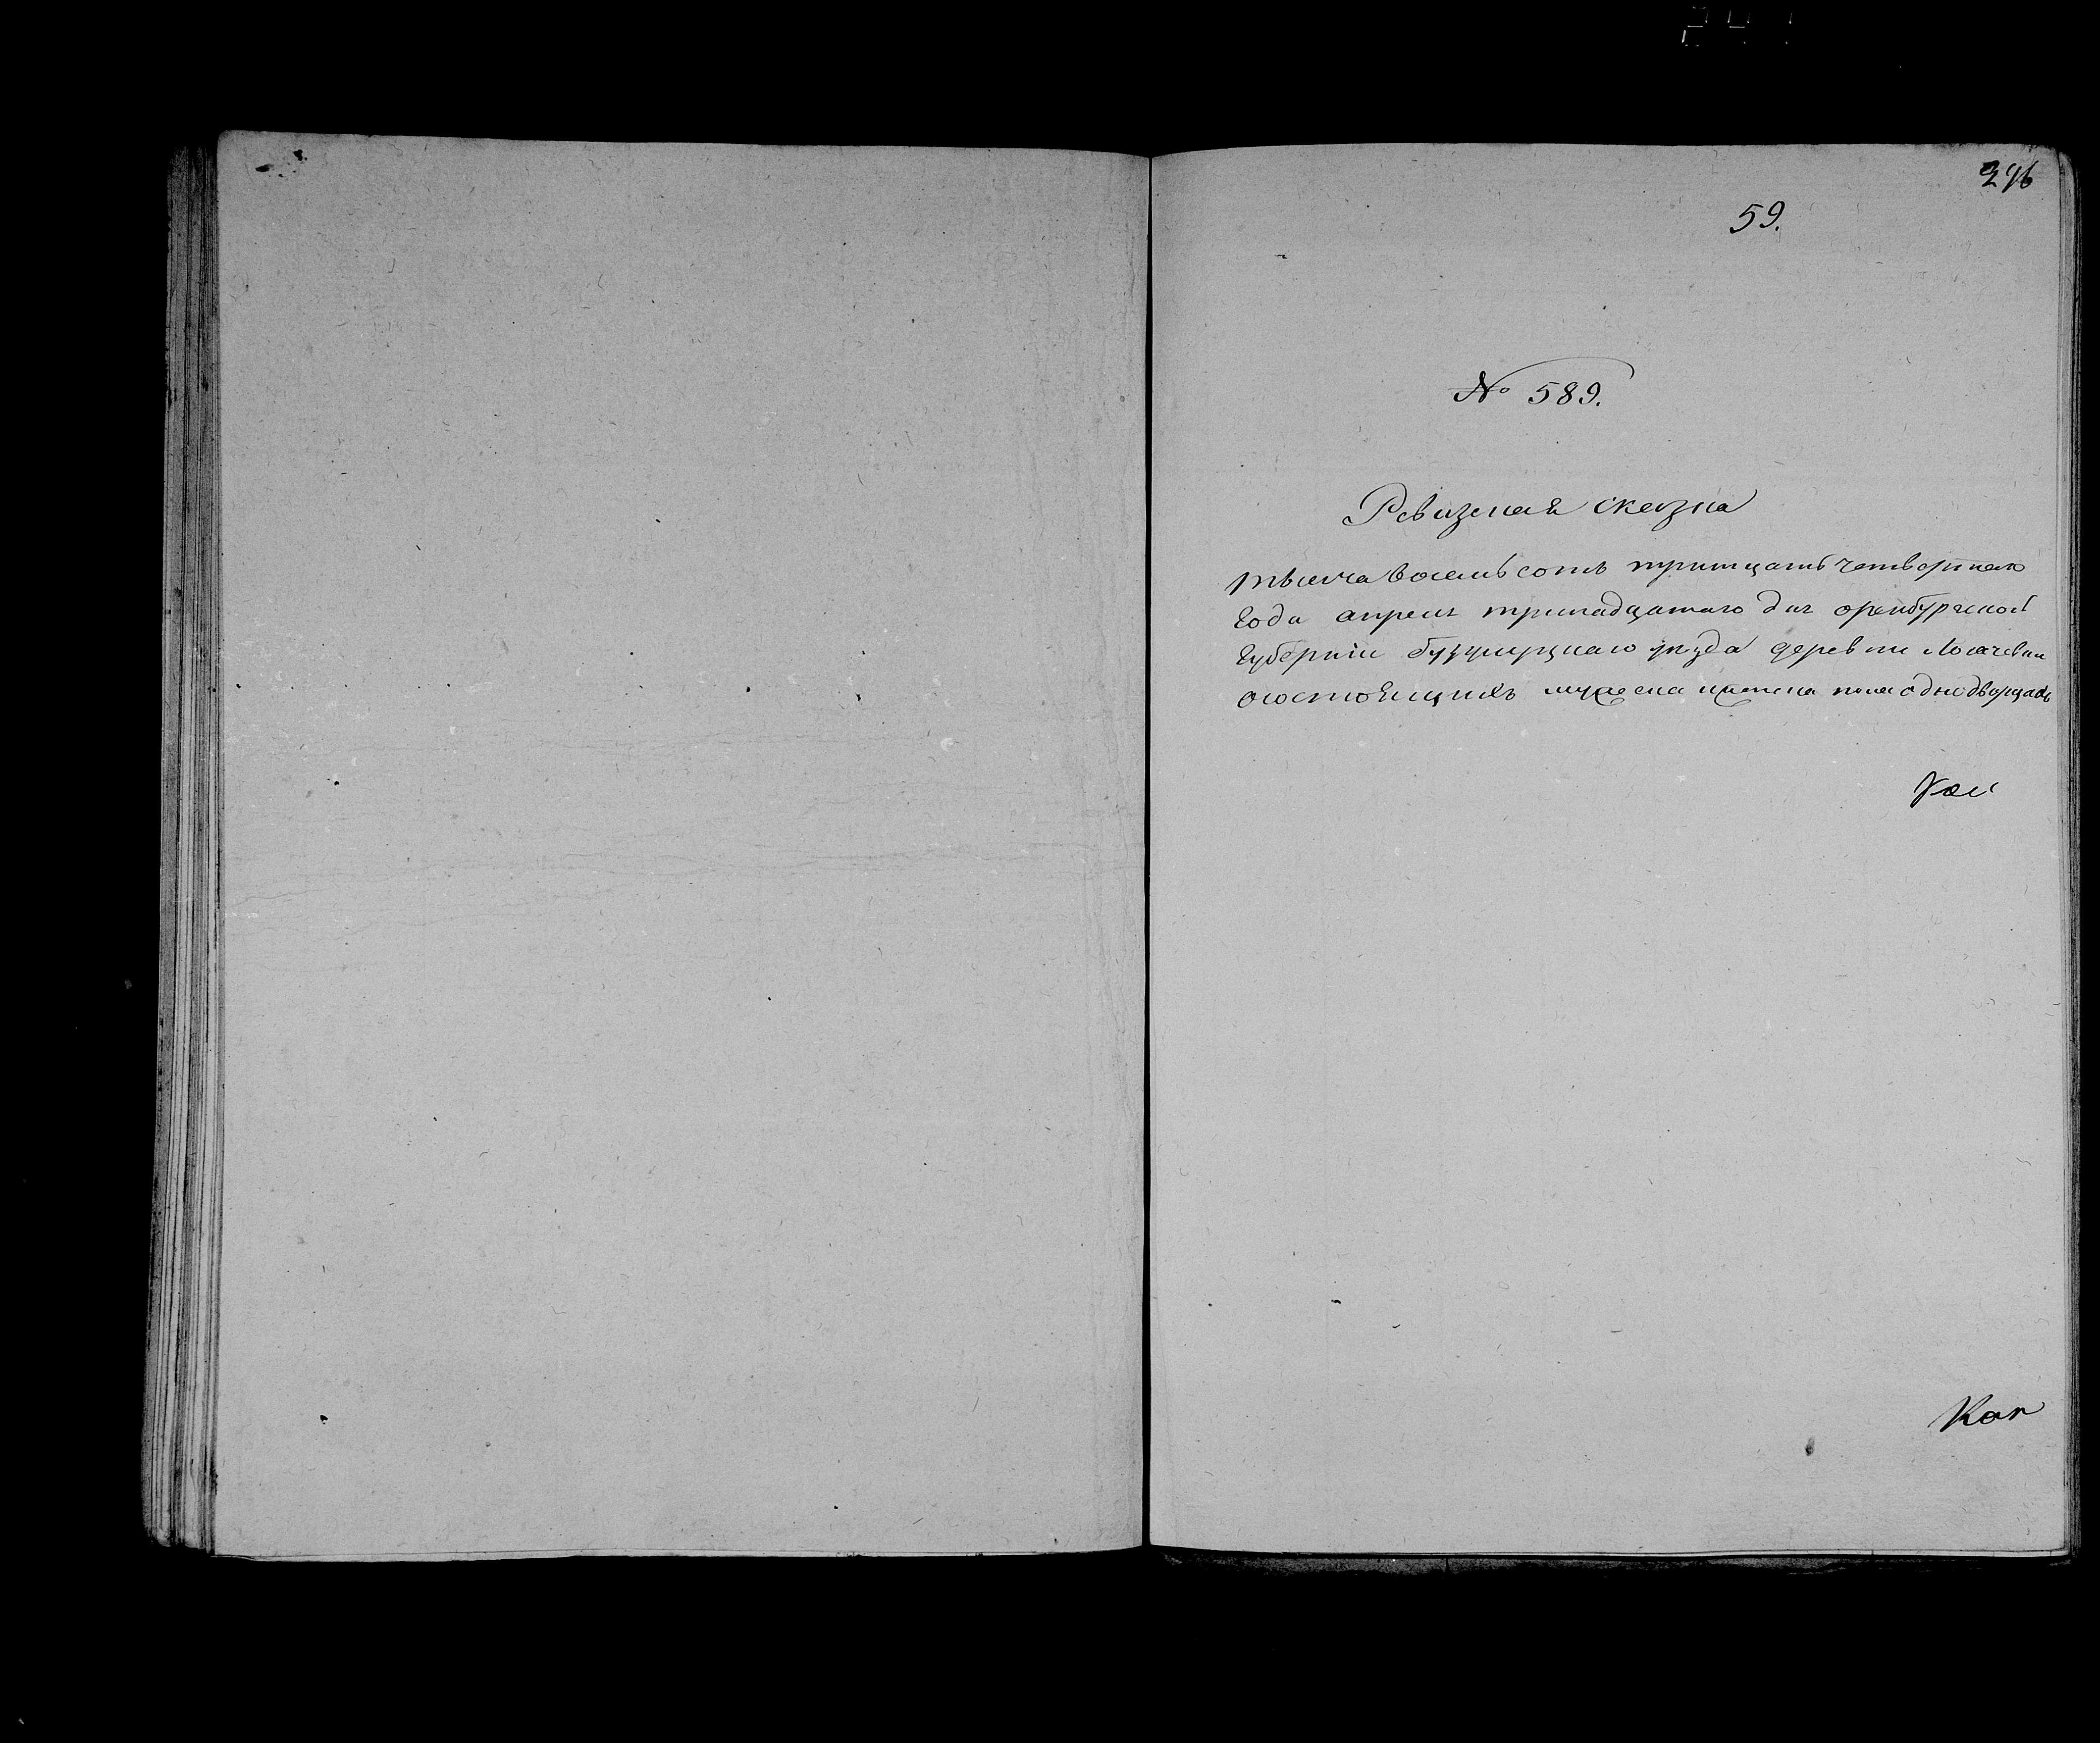 296
59.
№ 589.
Ревизская сказка
тысяча восемьсотъ тритцать четвертаго
Года апреля тринадцатаго дня оренбургской
Губерніи бузулуцкаго уезда деревни
осостоящихъ мужеска иженска пола однодворцахъ